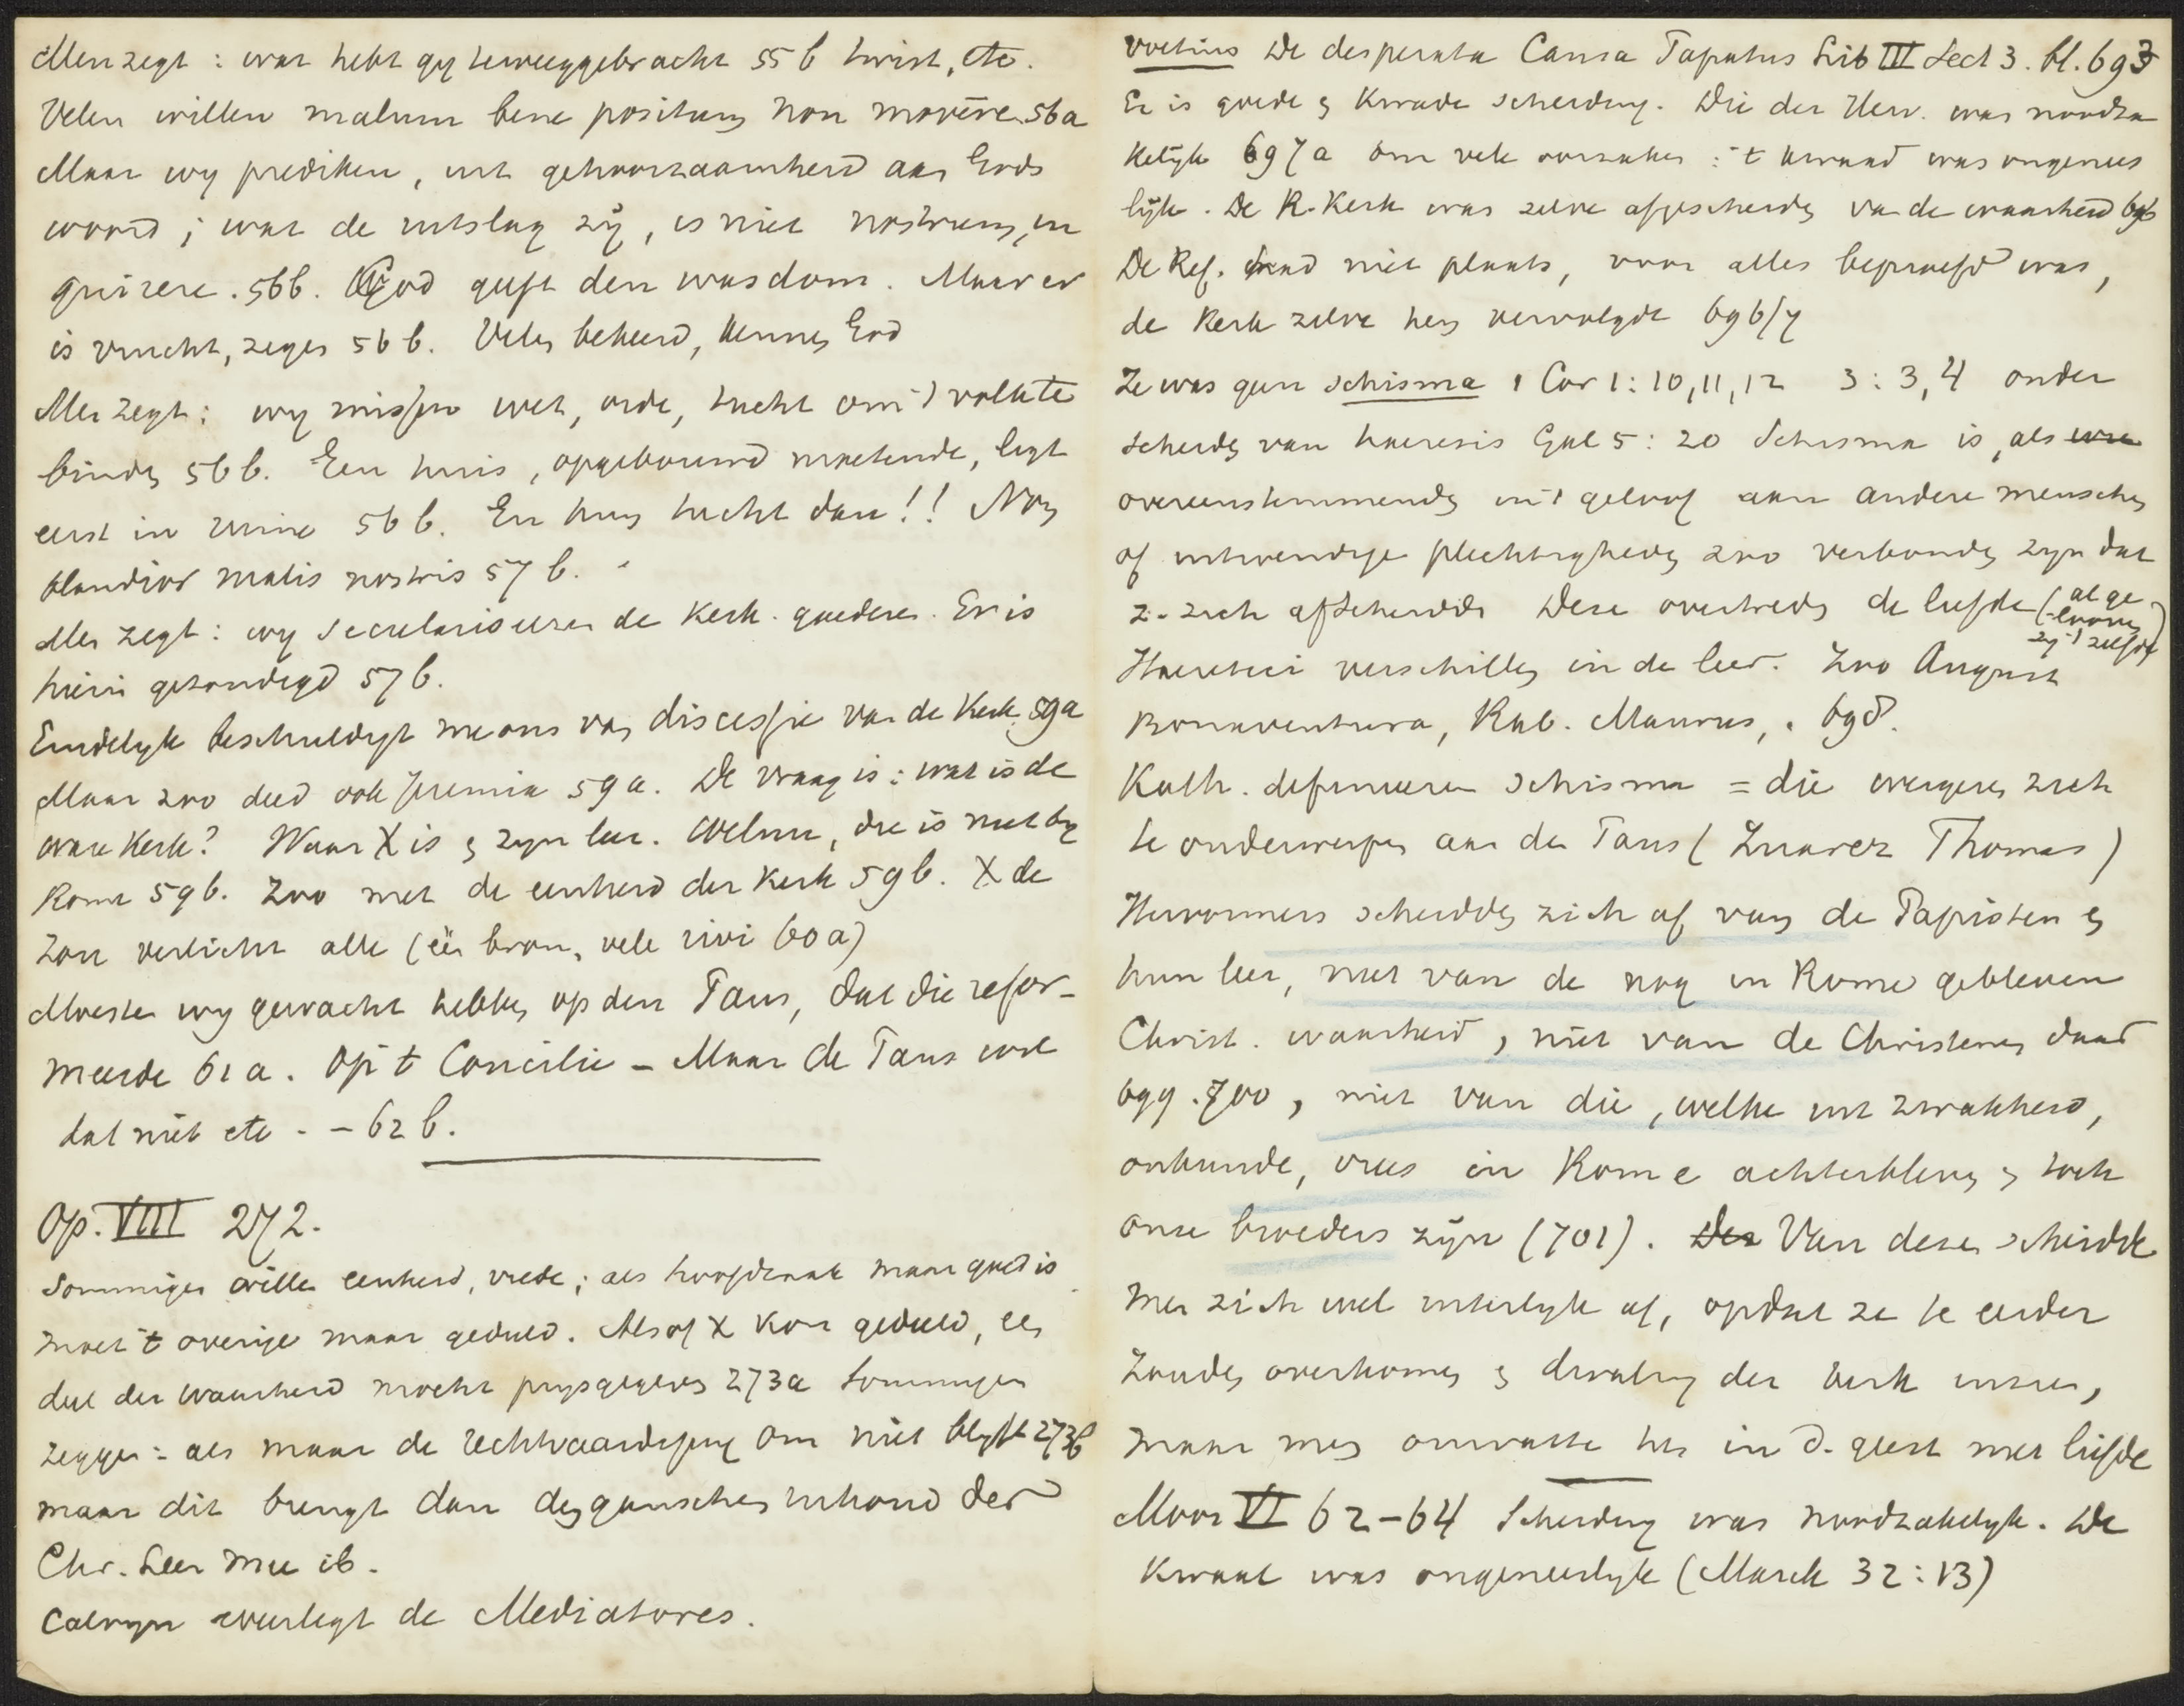 Men zegt: wat hebt gy teweeggebracht 55b twist, etc.
Velen willen malum bene positum non movēre. 56a
Maar wy prediken, uit gehoorzaamheid aan Gods
woord; wat de uitslag zij, is niet nostrum, in
quirere. 56b. God geeft den wasdom. Maar er
is vrucht, zegen 56b. Velen bekeerd, kennen God
Men zegt: wy missen wet, orde, tucht om 't volk te
binden 56b. Een huis, opgebouwd moetende, ligt
eerst in ruine 56b. En hun tucht dan!! Non
blandior malis nostris 57b.
Men zegt: wy seculariseeren de Kerk. goederen. Er is
hierin gezondigd 57b.
Eindelyk beschuldigt me ons van discessie van de Kerk. 59a
Maar zoo deed ook Jeremia 59a. De vraag is: wat is de
ware Kerk? Waar X is en zyn leer. Welnu, die is niet by
Rome 59b. Zoo met de eenheid der Kerk 59b. X de
zon verlicht alle (één bron, vele rivi 60a)
Moesten wy gewacht hebben op den Paus, dat die refor-
meerde 61a. Op 't Concilie - Maar de Paus wil
dat niet etc - - 62b.
Op. VIII 272.
Sommigen willen eenheid, vrede; als hoofdzaak maar goed is
moet 't overige maar geduld. Alsof X kon gedeeld, een
deel der waarheid mocht prysgegeven 273a Sommigen
zeggen: als maar de rechtvaardiging om niet blyft 273b
maar dit brengt dan den ganschen inhoud der
Chr. Leer mee ib.
Calvyn weerlegt de Mediatores.
Voetius De desperata Causa Papatus Lib III Sect 3. bl. 693
Er is goede en kwade scheiding. Die der Herv. was noodza
kelijk 697a om vele oorzaken: 't kwaad was ongenees
lijk. De R. Kerk was zelve afgescheiden van de waarheid 696
De Ref. had niet plaats, voor alles beproefd was,
de Kerk zelve hen vervolgde 696/7
Ze was geen schisma 1 Cor 1:10,11,12 3:3,4 onder
scheiden van haeresis Gal 5:20 Schisma is, als
overeenstemmende in 't geloof aan andere menschen
of uitwendige plechtigheden zoo verbonden zyn dat
z. zich afscheidde Deze overtreden de liefde (al ge
-looven
zy 't zelfde)
Haeretici verschillen in de leer. Zoo August
Bonaventura, Rab. Maurus, . 698.
Kath. definieeren schisma = die weigeren zich
te onderwerpen aan den Paus (Zuarez Thomas)
Hervormers scheidden zich af van de Papisten en
hun leer, niet van de nog in Rome gebleven
Christ. waarheid, niet van de Christenen daar
699. 700, niet van die, welke uit zwakheid,
onkunde, vrees in Rome achterbleven en toch
onze broeders zijn (701). Van deze scheidde
men zich wel uiterlyk af, opdat ze te eerder
zouden overkomen en dwaling der Kerk inzien,
maar men omvatte hen in d. geest met liefde
Moor VI 62-64 Scheiding was noodzakelyk. De
Kwaal was ongeneeslyk (Marck 32:13)